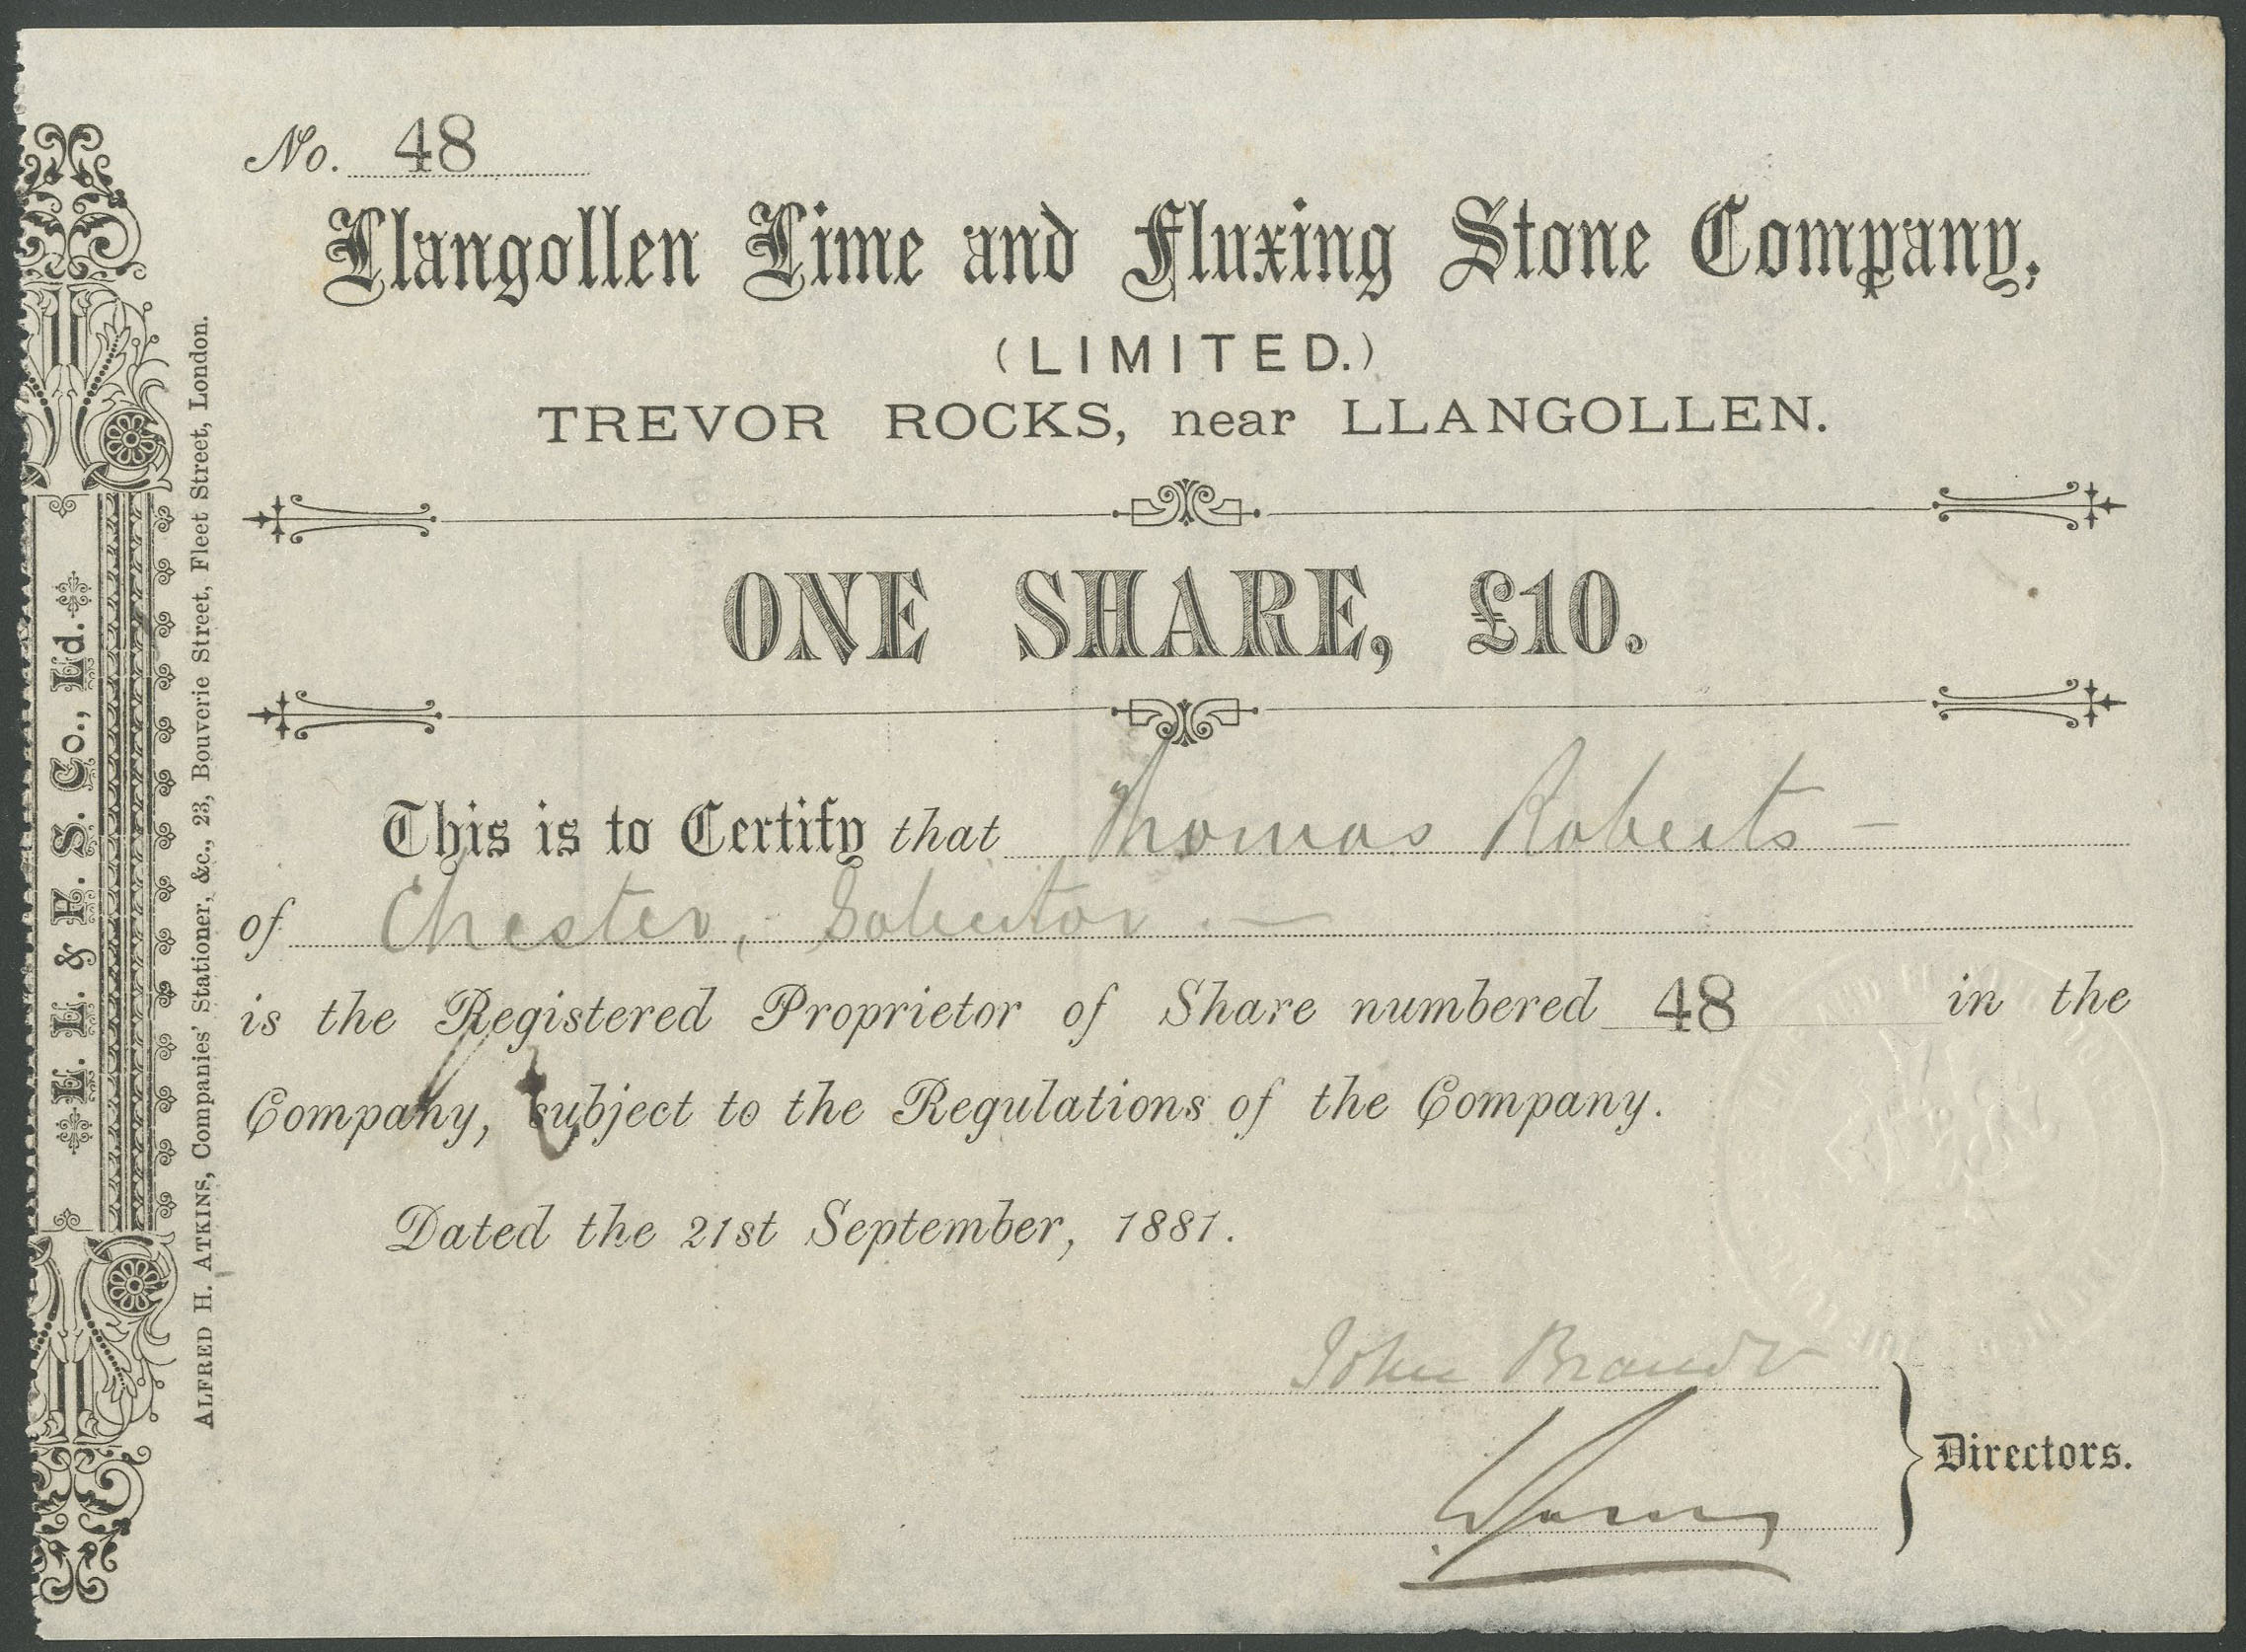 No. 48
Llangollen Lime and Fluxing Stone Company,
(LIMITED.)
TREVOR ROCKS, near LLANGOLLEN.
ONE SHARE, £10.
This is to Certify that Thomas Roberts —
of Chester, Solicitor. —
is the Registered Proprietor of Share numbered 48 in the
Company, subject to the Regulations of the Company.
Dated the 21st September, 1881.
John Brandt
Directors.
L. L. & F. S. Co., Ld.
ALFRED H. ATKINS, Companies' Stationer, &c., 23, Bouverie Street, Fleet Street, London.